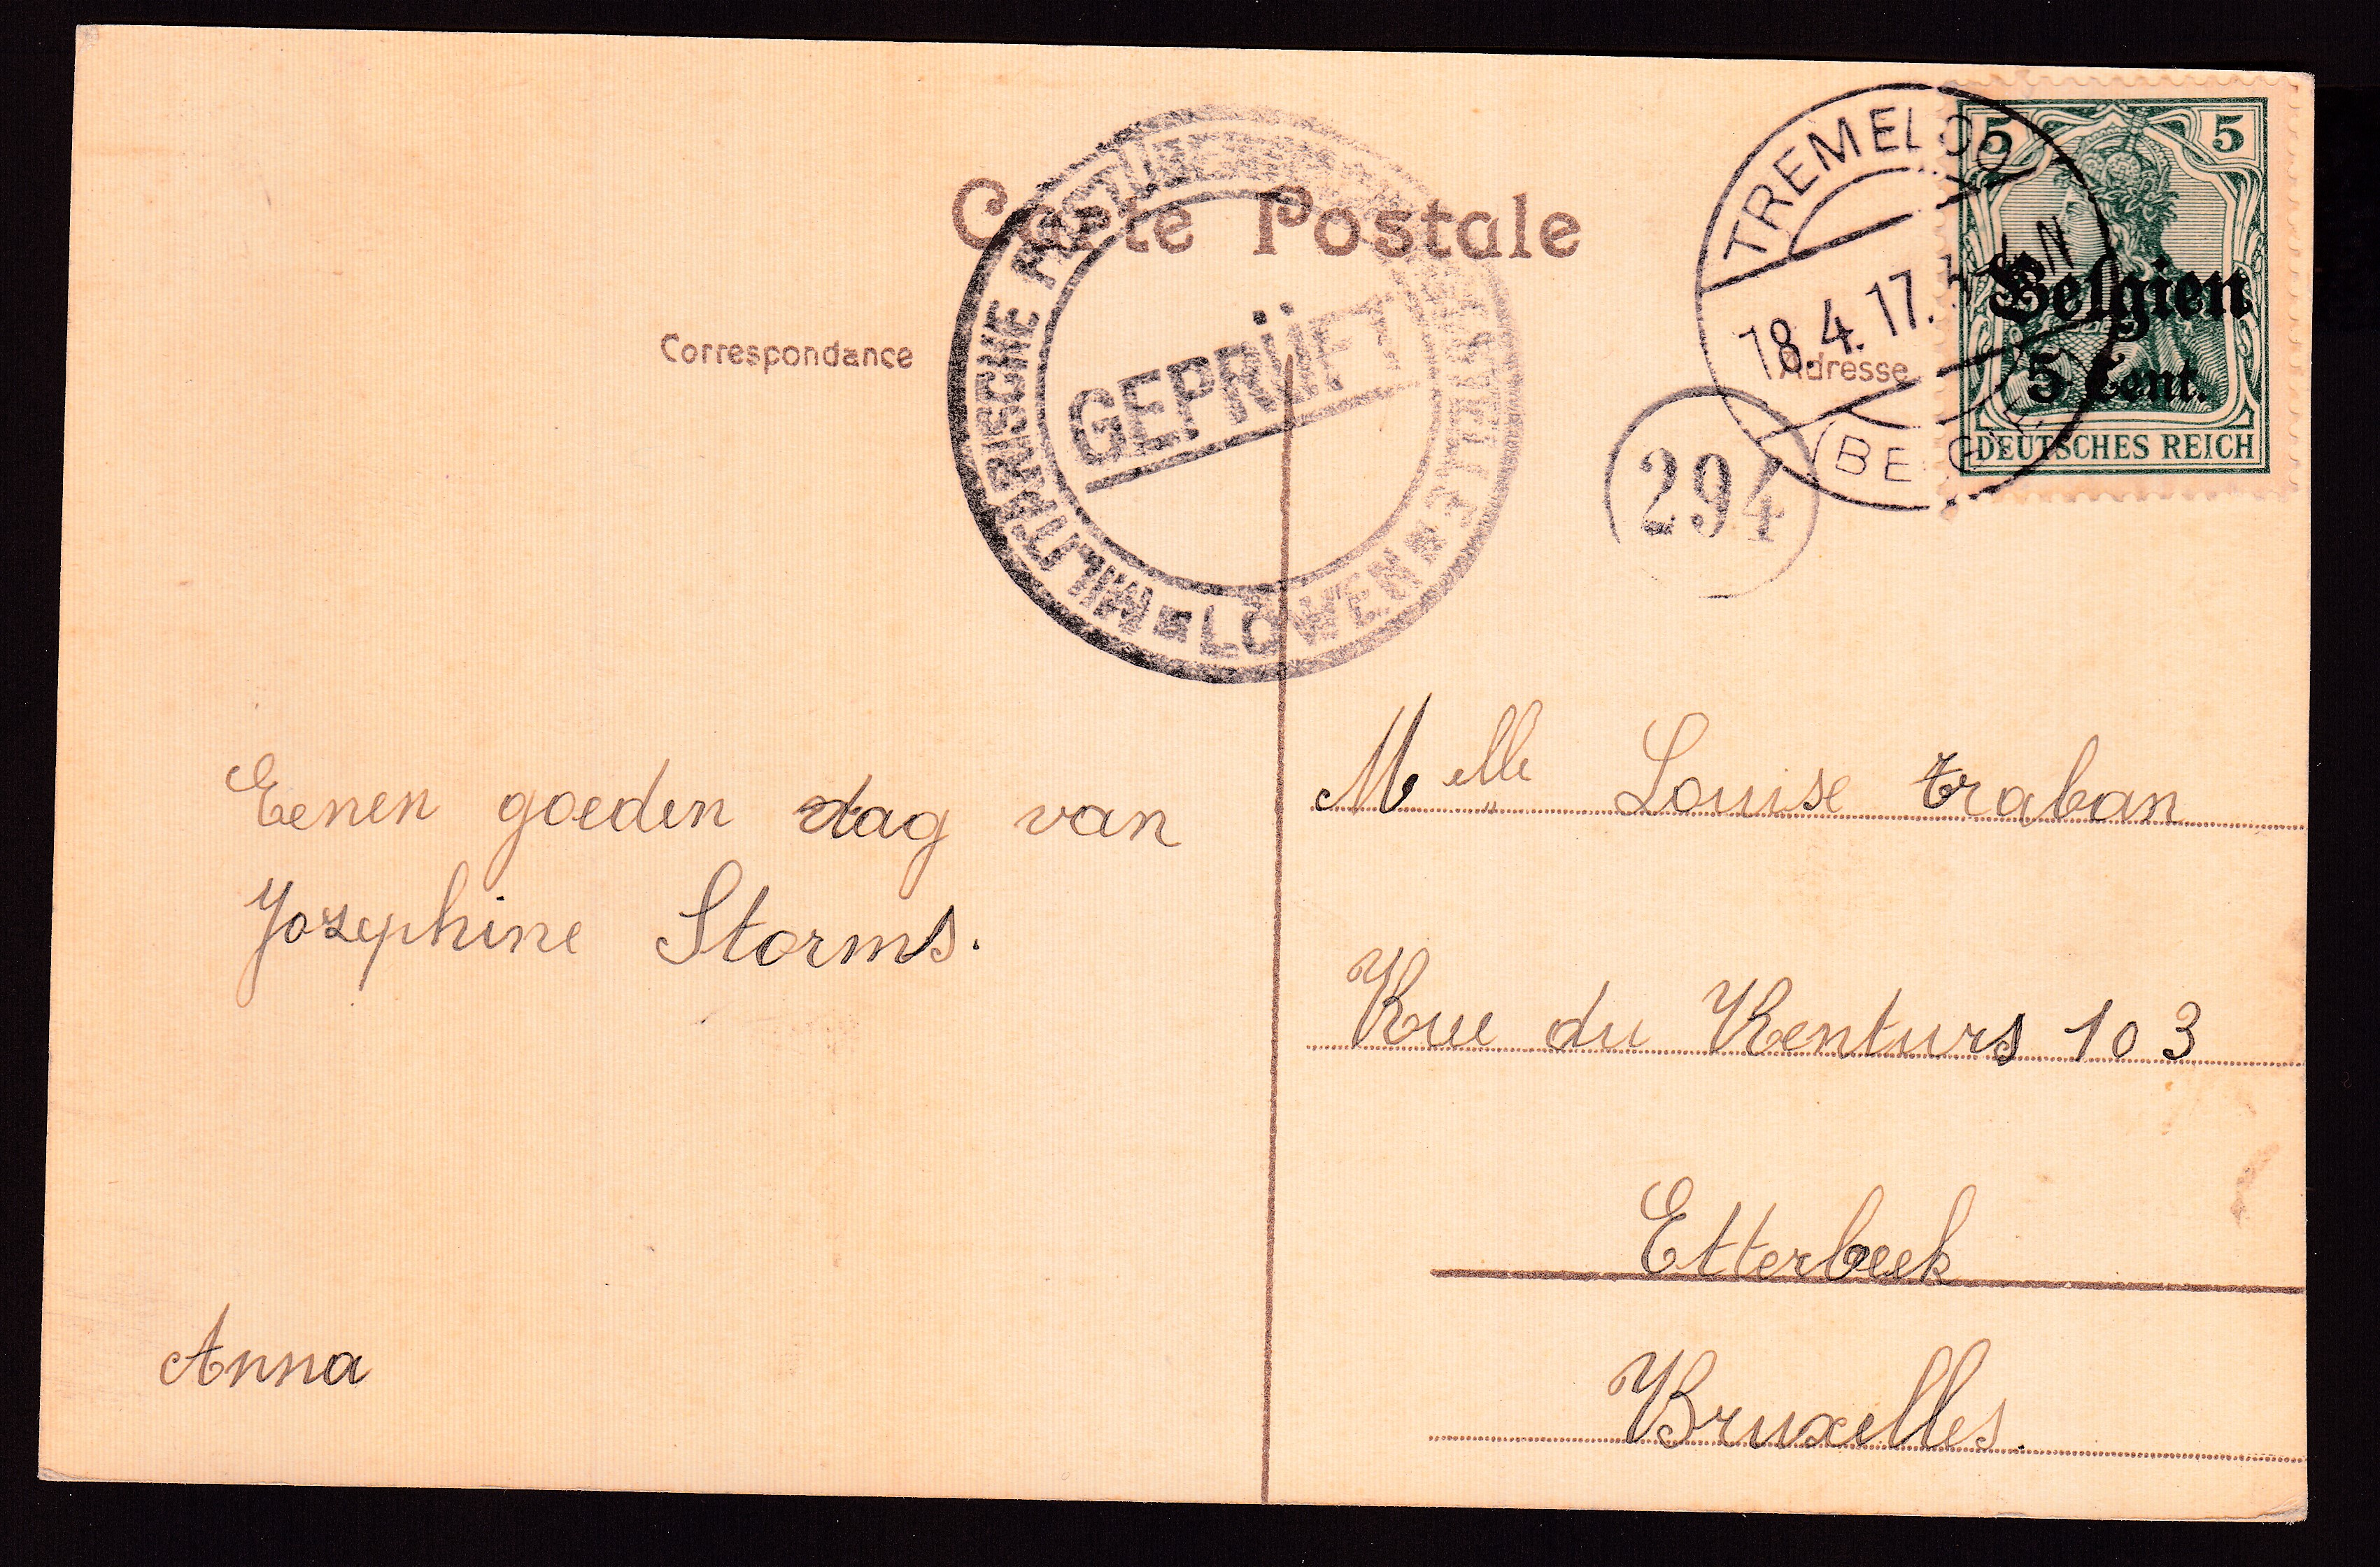 Carte Postale
Correspondance
MILITÄRISCHE
GEPRÜFT
LÖWEN
TREMELOO
18.4.17.
BELGIE
Adresse
294
5 5
Belgien
5 Cent.
DEUTSCHES REICH
Eenen goeden dag van
Jozephine Storms.
Anna
Melle Louise Traban
Rue du Renturs 103
Etterbeek
Bruxelles.